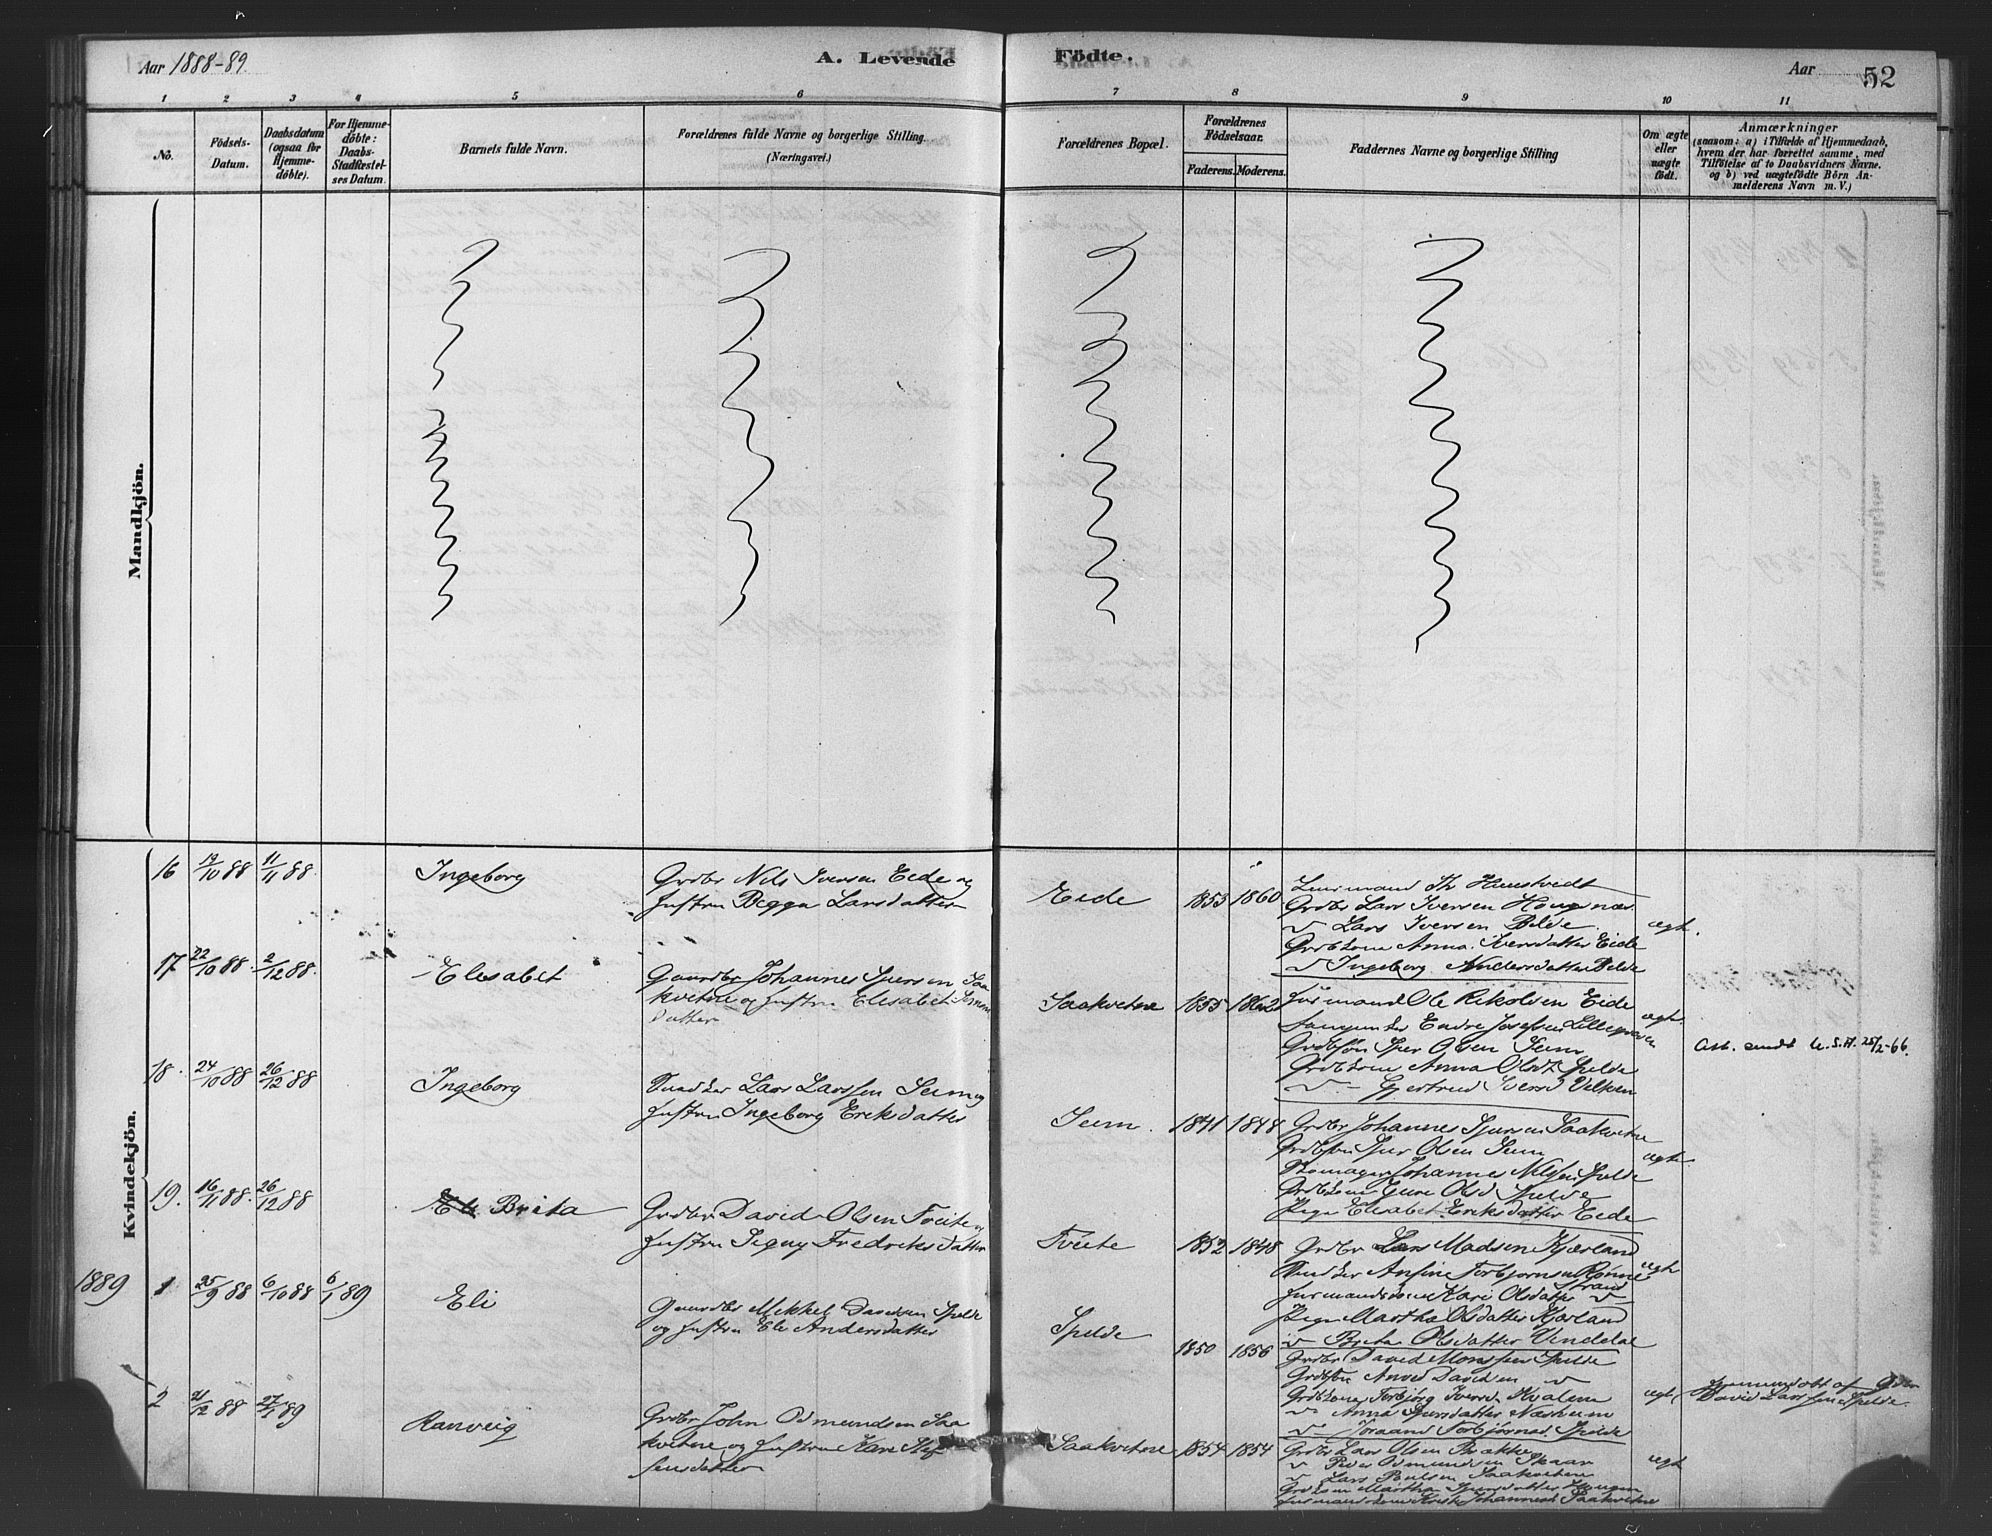 Aar 1888-89.
A. Levende Födte.
Aar
52
1 2 3 4 5 6 7 8 9 10 11
No.
Födsels-Datum.
Daabsdatum (ogsaa for Hjemme-döbte).
For Hjemme-döbte: Daabs-Stadfæstel-ses Datum.
Barnets fulde Navn.
Forældrenes fulde Navne og borgerlige Stilling.
(Næringsvei.)
Forældrenes Bopæl.
Forældrenes Födselsaar.
Faderens. Moderens.
Faddernes Navne og borgerlige Stilling
Om ægte eller uægte födt.
Anmærkninger
(saasom: a) i Tilfælde af Hjemmedaab, hvem der har forrettet samme, med Tilföielse af to Daabsvidners Navne. og b) ved uægtefödte Börn An-melderens Navn m. V.)
Mandkjön.
Kvindekjön.
16 19/10 88 11/11 88. Ingeborg
Grdbr Nils Iversen Eide og
Hustru Begga Larsdatter
Eide 1853 1860
Lensmand Th Haustvedt
Grdbr Lars Iversen
v Lars Iversen Bilde
Anna Iversdatter Eide
v Ingeborg Andersdatter Bilde
ægt.
17 22/10 88. 2/12 88. Elesabet
Gaardbr Johannes Sjursen Saa
kvitne og Hustru Elesabet Simons
datter
Saakvitne 1855 1862
Husmand Ole Eide
Endre Josefsen Lillegraven
Sjur Olsen Seim
Anna Olsd Spilde
v Gjertrud Iversd Velken
ægt.
Att. sendt U.S.A. 25/2-66.
18. 24/10 88 26/12 88 Ingeborg
Lars Larssen Seim og
Hustru Ingeborg Eriksdatter
Seim. 1841 1848
Grdbr Johannes Sjursen Saakvitne
Sjur Olsen Seim
Skomager Johannes Nilsen Spilde
Olsd Spilde
Pige Elesabet Eriksdatter Eide
ægt
19. 16/11 88. 26/12 88 Brita
Grdbr David Olsen Tveite og
Hustru Signy Fredriksdatter
Tveite 1852 1848
Grdbr Lars Madsen Kjærland
Ansine Torbjørnsen
Kari Olsdatter v
Pige Martha Olsdatter Kjærland
v Brita Olsdatter Vindal
ægt
1889
1 25/9 88 6/10 88 6/1 89 Eli
Gaardbr Mikkel Davidsen Spilde
og Hustru Eli Andersdatter
Spilde 1850 1856
Grdbr David Monssen Spilde
Davidsen v
Torbjørg Iversd Kvalem
v Anna Sjursdatter Næsheim
v Torbjørnsd. Spilde
ægt
Hjemmedøbt af
David Larssen Spilde.
2 21/12 88 27/1 89 Ranveig
Grdbr John Odmundsen Saa
kvitne og Hustru Kari Stef
fensdatter
Saakvitne 1854 1854
Grdbr Lars Olsen Brakke
v Peder Odmundsen Skaar
v Lars Poulsen Saakvitne
Martha Sjursdatter Haugen
Johannesd Saakvitne
ægt